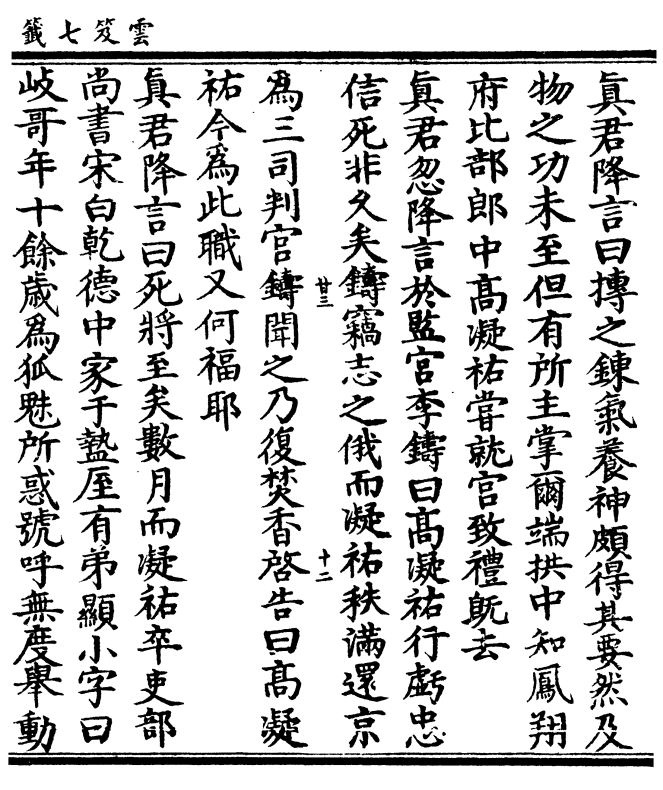 雲笈七籤
真君降言曰摶之鍊氣養神頗得其要然及
物之功未至但有所主掌爾端拱中知鳳翔
府比部郎中髙凝祐嘗就宫致禮旣去
真君忽降言於監宫李鑄曰髙凝祐行虧忠
信死非久矣鑄竊志之俄而凝祐秩滿還京
廿三
十二
為三司判官鑄聞之乃復焚香啓告曰髙凝
祐今為此職又何福耶
真君降言曰死將至矣數月而凝祐卒吏部
尚書宋白乾德中家于盩厔有弟顯小字曰
岐哥年十餘歲為狐魅所惑號呼無度舉動